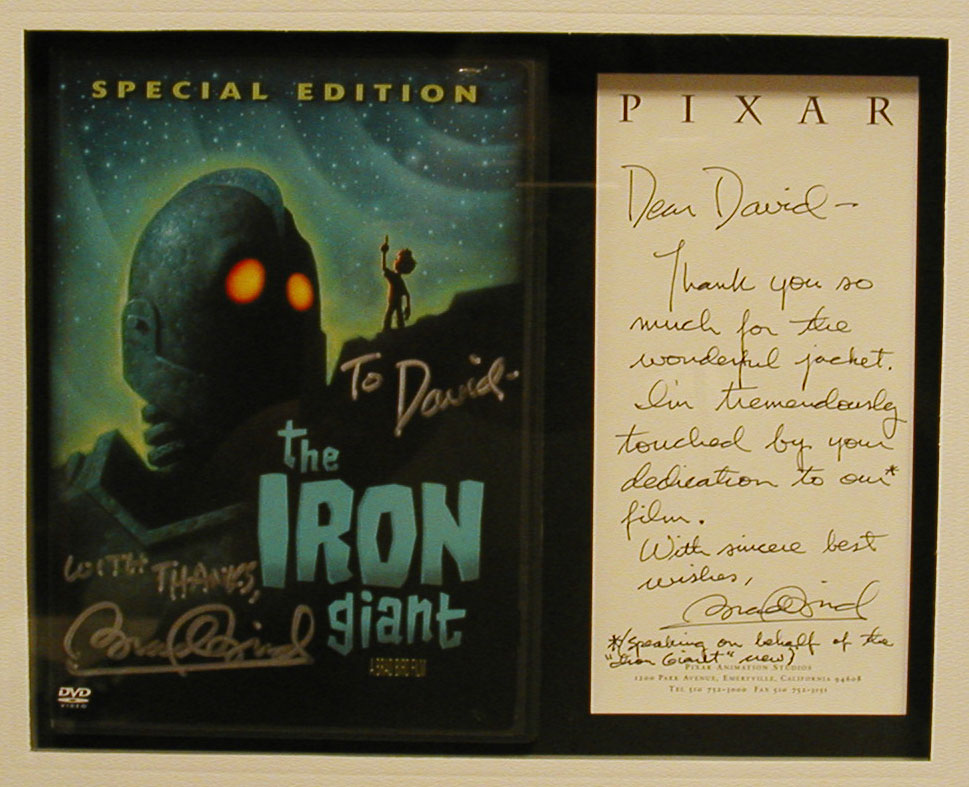 SPECIAL EDITION
To David-
the
IRON
giant
WITH THANKS,
Brad Bird
A BRAD BIRD FILM
DVD
VIDEO
PIXAR
Dear David-
Thank you so
much for the
wonderful jacket.
I'm tremendously
touched by your
dedication to our*
film.
With sincere best
wishes,
Brad Bird
*(speaking on behalf of the
"Iron Giant" crew)
PIXAR ANIMATION STUDIOS
1200 PARK AVENUE, EMERYVILLE, CALIFORNIA 94608
TEL 510 752-3000 FAX 510 752-3151